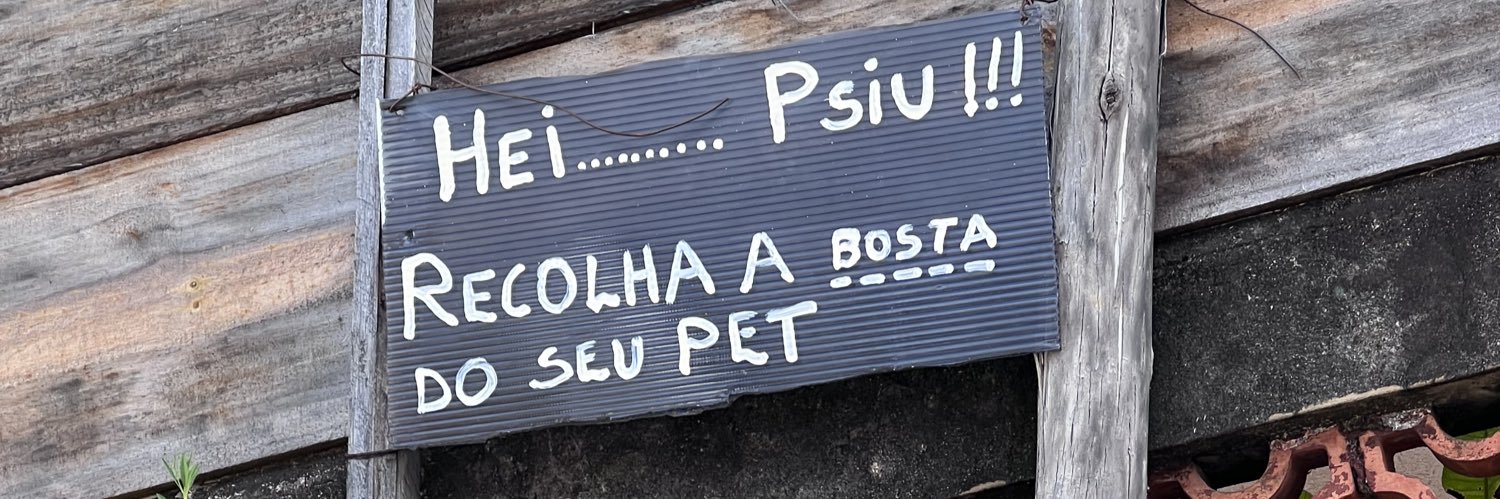 Hei.......... Psiu!!!
RECOLHA A BOSTA
DO SEU PET